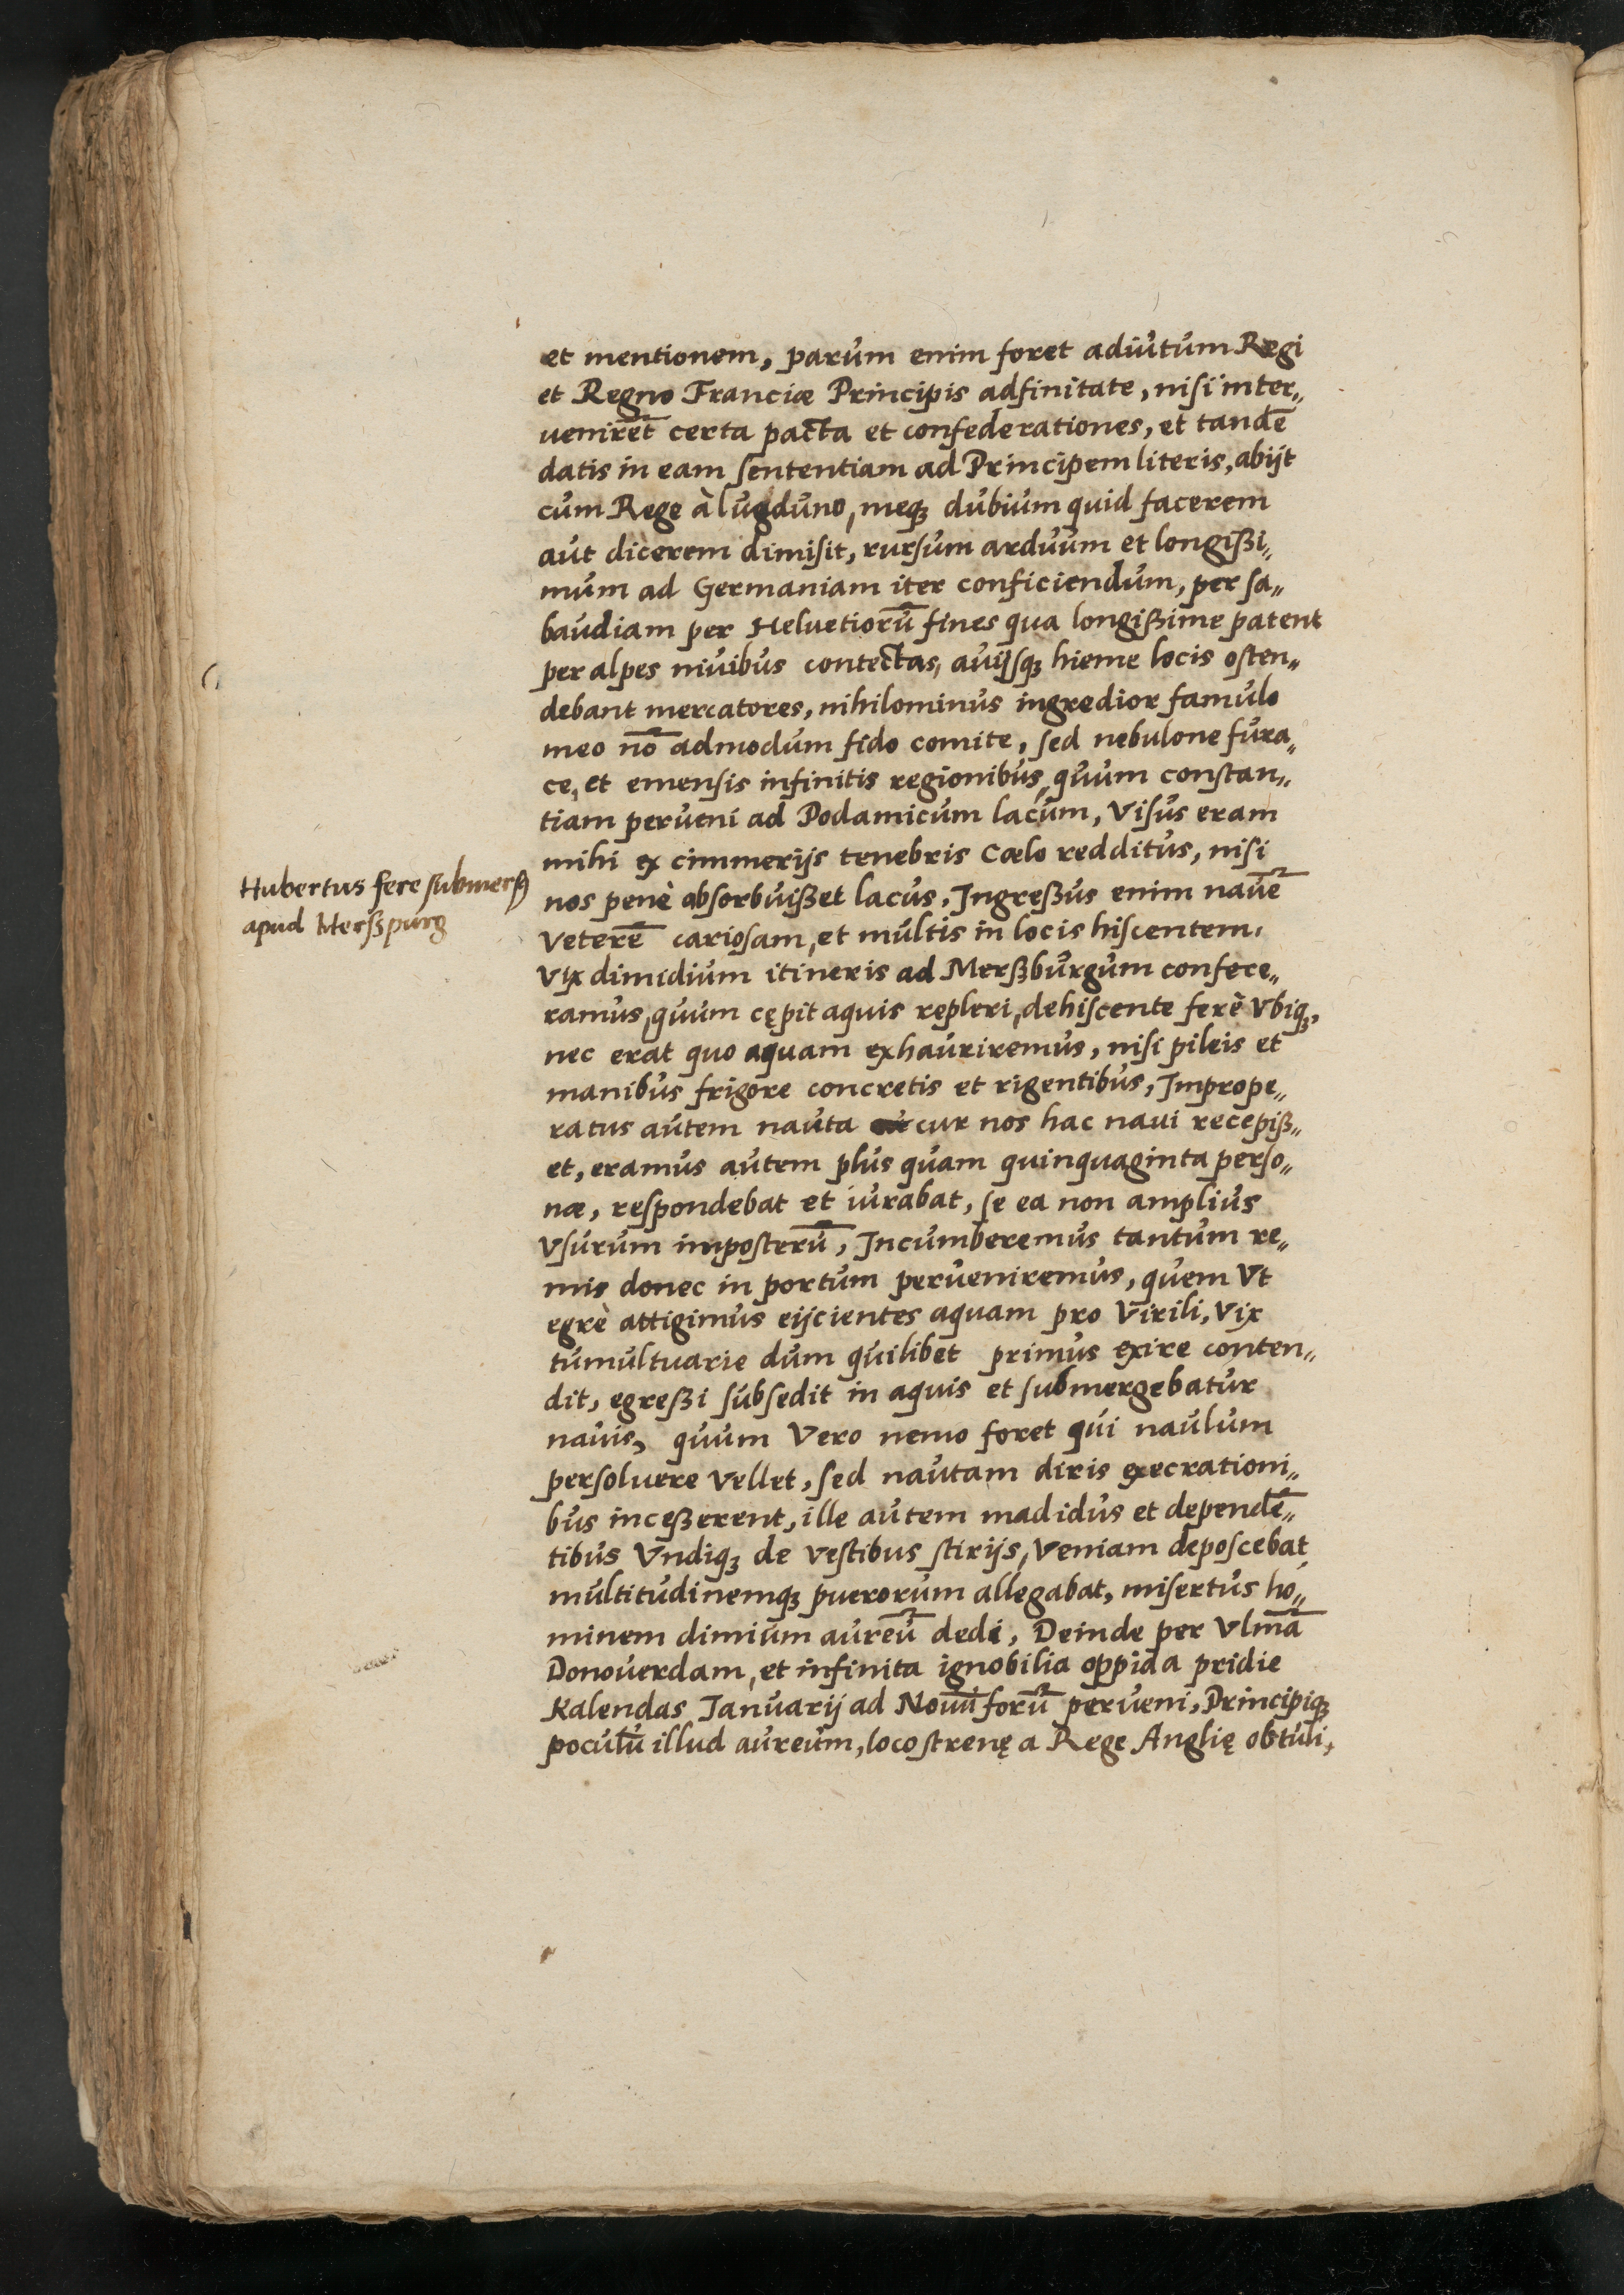 et mentionem, parum enim foret adiutum Regi
et Regno Franciæ Principis adfinitate, nisi inter„
venirēt certa pacta et confederationes, et tandē
datis in eam sententiam ad Principem literis, abijt
cum Rege à lugduno, meqꝫ dubium quid facerem
aut dicerem dimisit, rursum arduum et longißi„
mum ad Germaniam iter conficiendum, per sa„
baudiam per Helvetiorū fines qua longißime patent
per alpes nivibus contectas, avijsqꝫ hieme locis osten„
debant mercatores, nihilominus ingredior famulo
meo nō admodum fido comite, sed nebulone fura„
ce, et emensis infinitis regionibus, quum constan„
tiam perveni ad Podamicum lacum, Visus eram
mihi ex cimmerijs tenebris Cœlo redditus, nisi
Hubertus fere submersꝰ
apud Merßpurg
nos penè absorbuißet lacus, Ingreßus enim navē
Veterē cariosam, et multis in locis hiscentem,
Vix dimidium itineris ad Merßburgum confece„
ramus, quum cępit aquis repleri, dehiscente ferè Vbiqꝫ,
nec erat quo aquam exhauriremus, nisi pileis et
manibus frigore concretis et rigentibus, Imprope„
ratus autem nauta cur nos hac navi recepiß„
et, eramus autem plus quam quinquaginta perso„
næ, respondebat et iurabat, se ea non amplius
Vsurum imposterū, Incumberemus tantum re„
mis donec in portum perveniremus, quem Vt
egrè attigimus eijcientes aquam pro Virili, Vix
tumultuarie dum quilibet primus exire conten„
dit, egreßi subsedit in aquis et submergebatur
navis, quum Vero nemo foret qui naulum
persoluere Vellet, sed nautam diris execrationi„
bus inceßerent, ille autem madidus et dependē„
tibus Vndiqꝫ de vestibus stirijs, Veniam deposcebat
multitudinemqꝫ puerorum allegabat, misertus ho„
minem dimium aureū dedi, Deinde per Vlmā
Donoverdam, et infinita ignobilia oppida pridie
Kalendas Ianuarij ad Novū forū perveni, Principiqꝫ
poculū illud aureum, loco strenę a Rege Anglię obtuli,